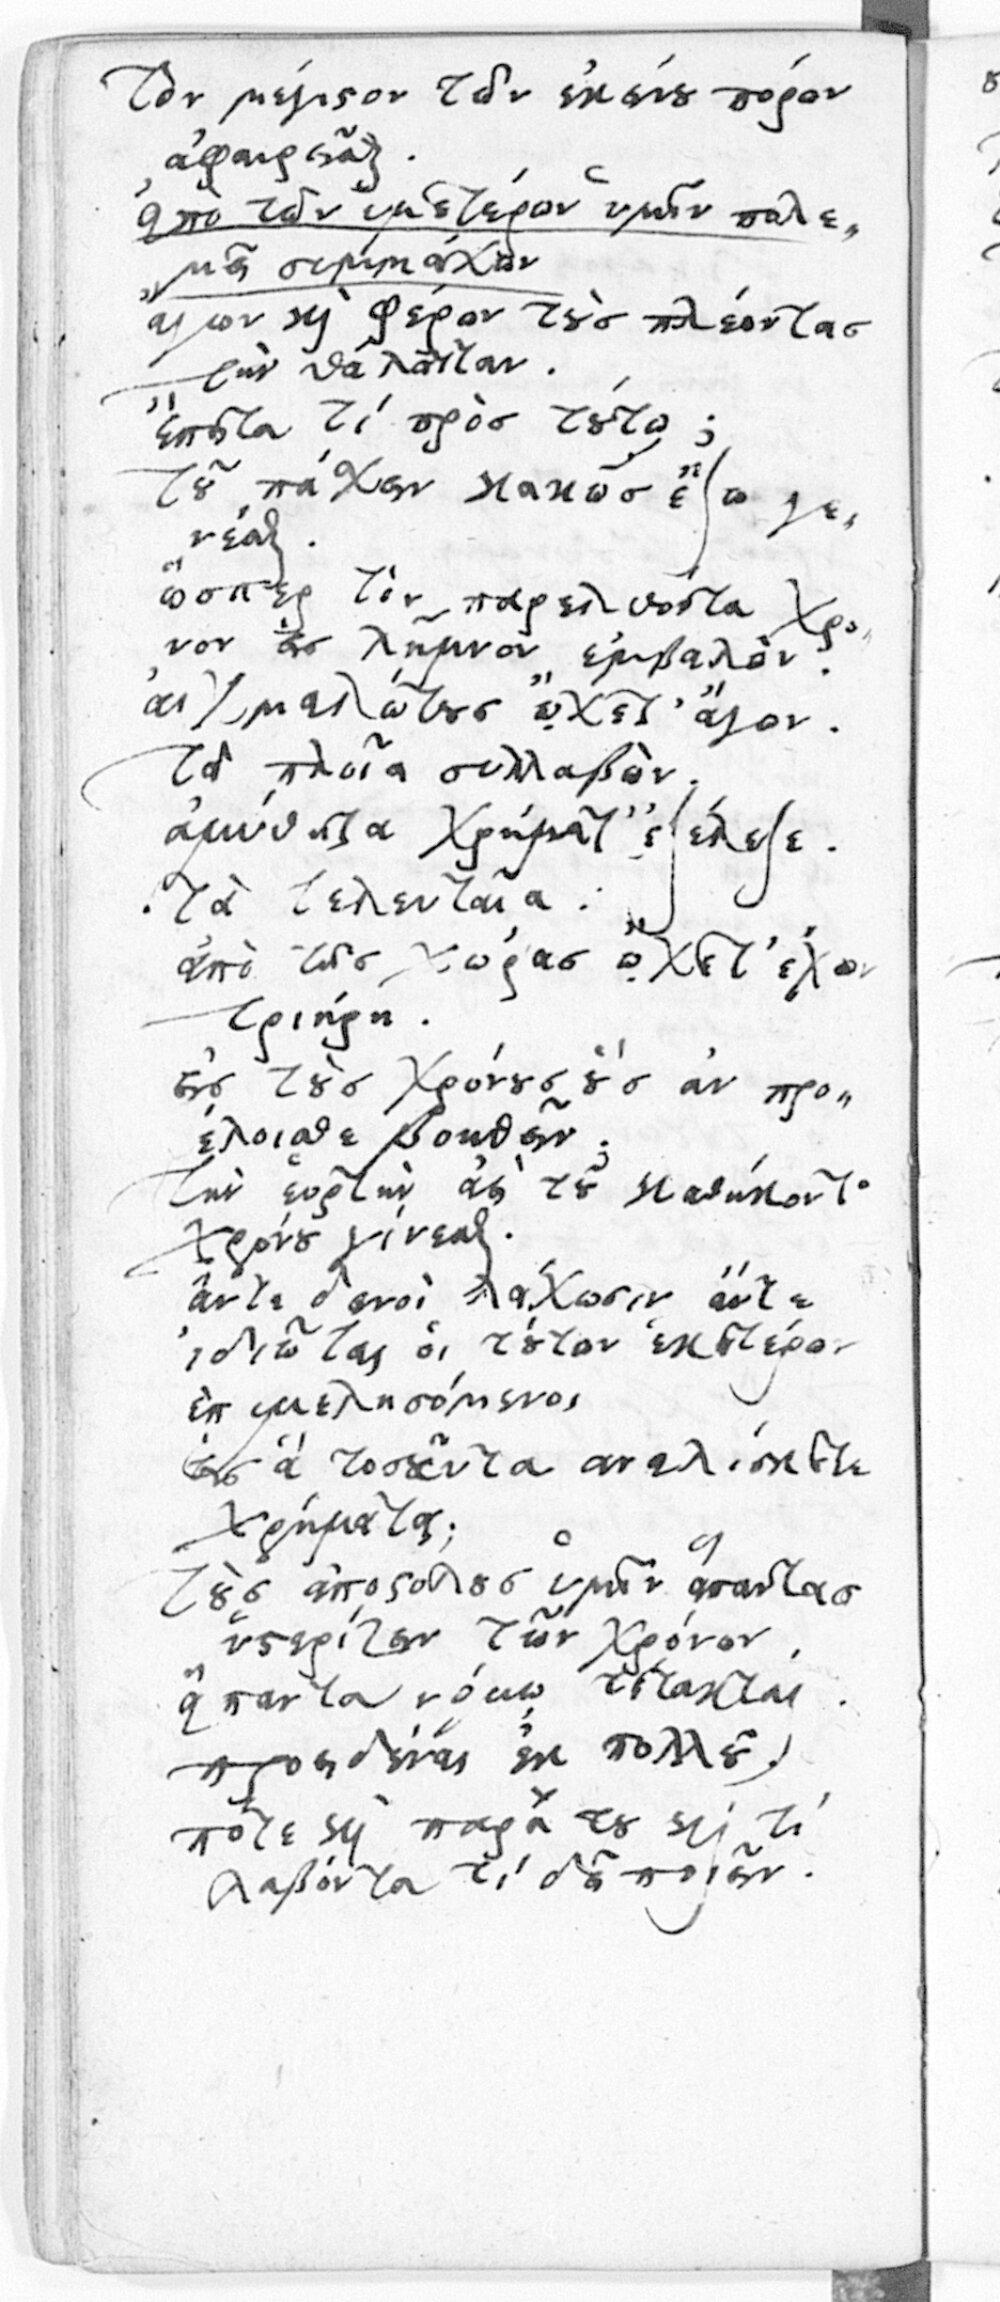 τὸν μέγιϛον τῶν ἐκείνȣ πόρων
ἀφαιρεῖσθαι.
ἀπὸ τῶν ὑμετέρων ὑμῖν πολε„
„μεῖ συμμάχων
ἄγων καὶ φέρων τȣ̀σ πλέοντασ
τὴν θάλατταν.
ἔπειτα τί πρὸσ τȣ́τῳ;
τȣ̃ πάσχειν κακῶσ ἔξω γε„
νέσθαι.
ὥσπερ τὸν παρελθόντα χρο„
νον εἰσ λῆμνον ἐμβαλὼν.
αἰχμαλώτȣσ ᾤχετ' ἄγων.
τὰ πλοῖα συλλαβὼν.
ἀμύθητα χρήματ' ἐξέλεξε.
τὰ τελευταῖα.
ἀπὸ τῆσ χώρασ ᾤχετ' ἔχων
τριήρη.
εἰσ τȣ̀σ χρόνȣσ ȣ̔́σ ἀν προ„
έλοισθε βοηθεῖν;
τὴν ἑορτὴν ἀεὶ τȣ̃ καθήκοντο
χρόνȣ γίνεσθαι.
ἄντε δεινοὶ λάχωσιν ἄντε
ἰδιῶται οἱ τȣ́των ἑκατέρων
ἐπιμελησόμενοι
εἰσ ἃ τοσȣ̃̃τα αναλίσκετε
χρήματα;
τȣ̀σ ἀποϛόλȣσ ὑμῖν ἅπαντασ
ὑϛερίζειν τῶν χρόνων.
ἅπαντα νόμῳ τέτακται.
προειδέναι ἐκ πολλȣ̃.
πότε καὶ παρὰ τȣ καὶ τί
λαβόντα τί δεῖ ποιεῖν.